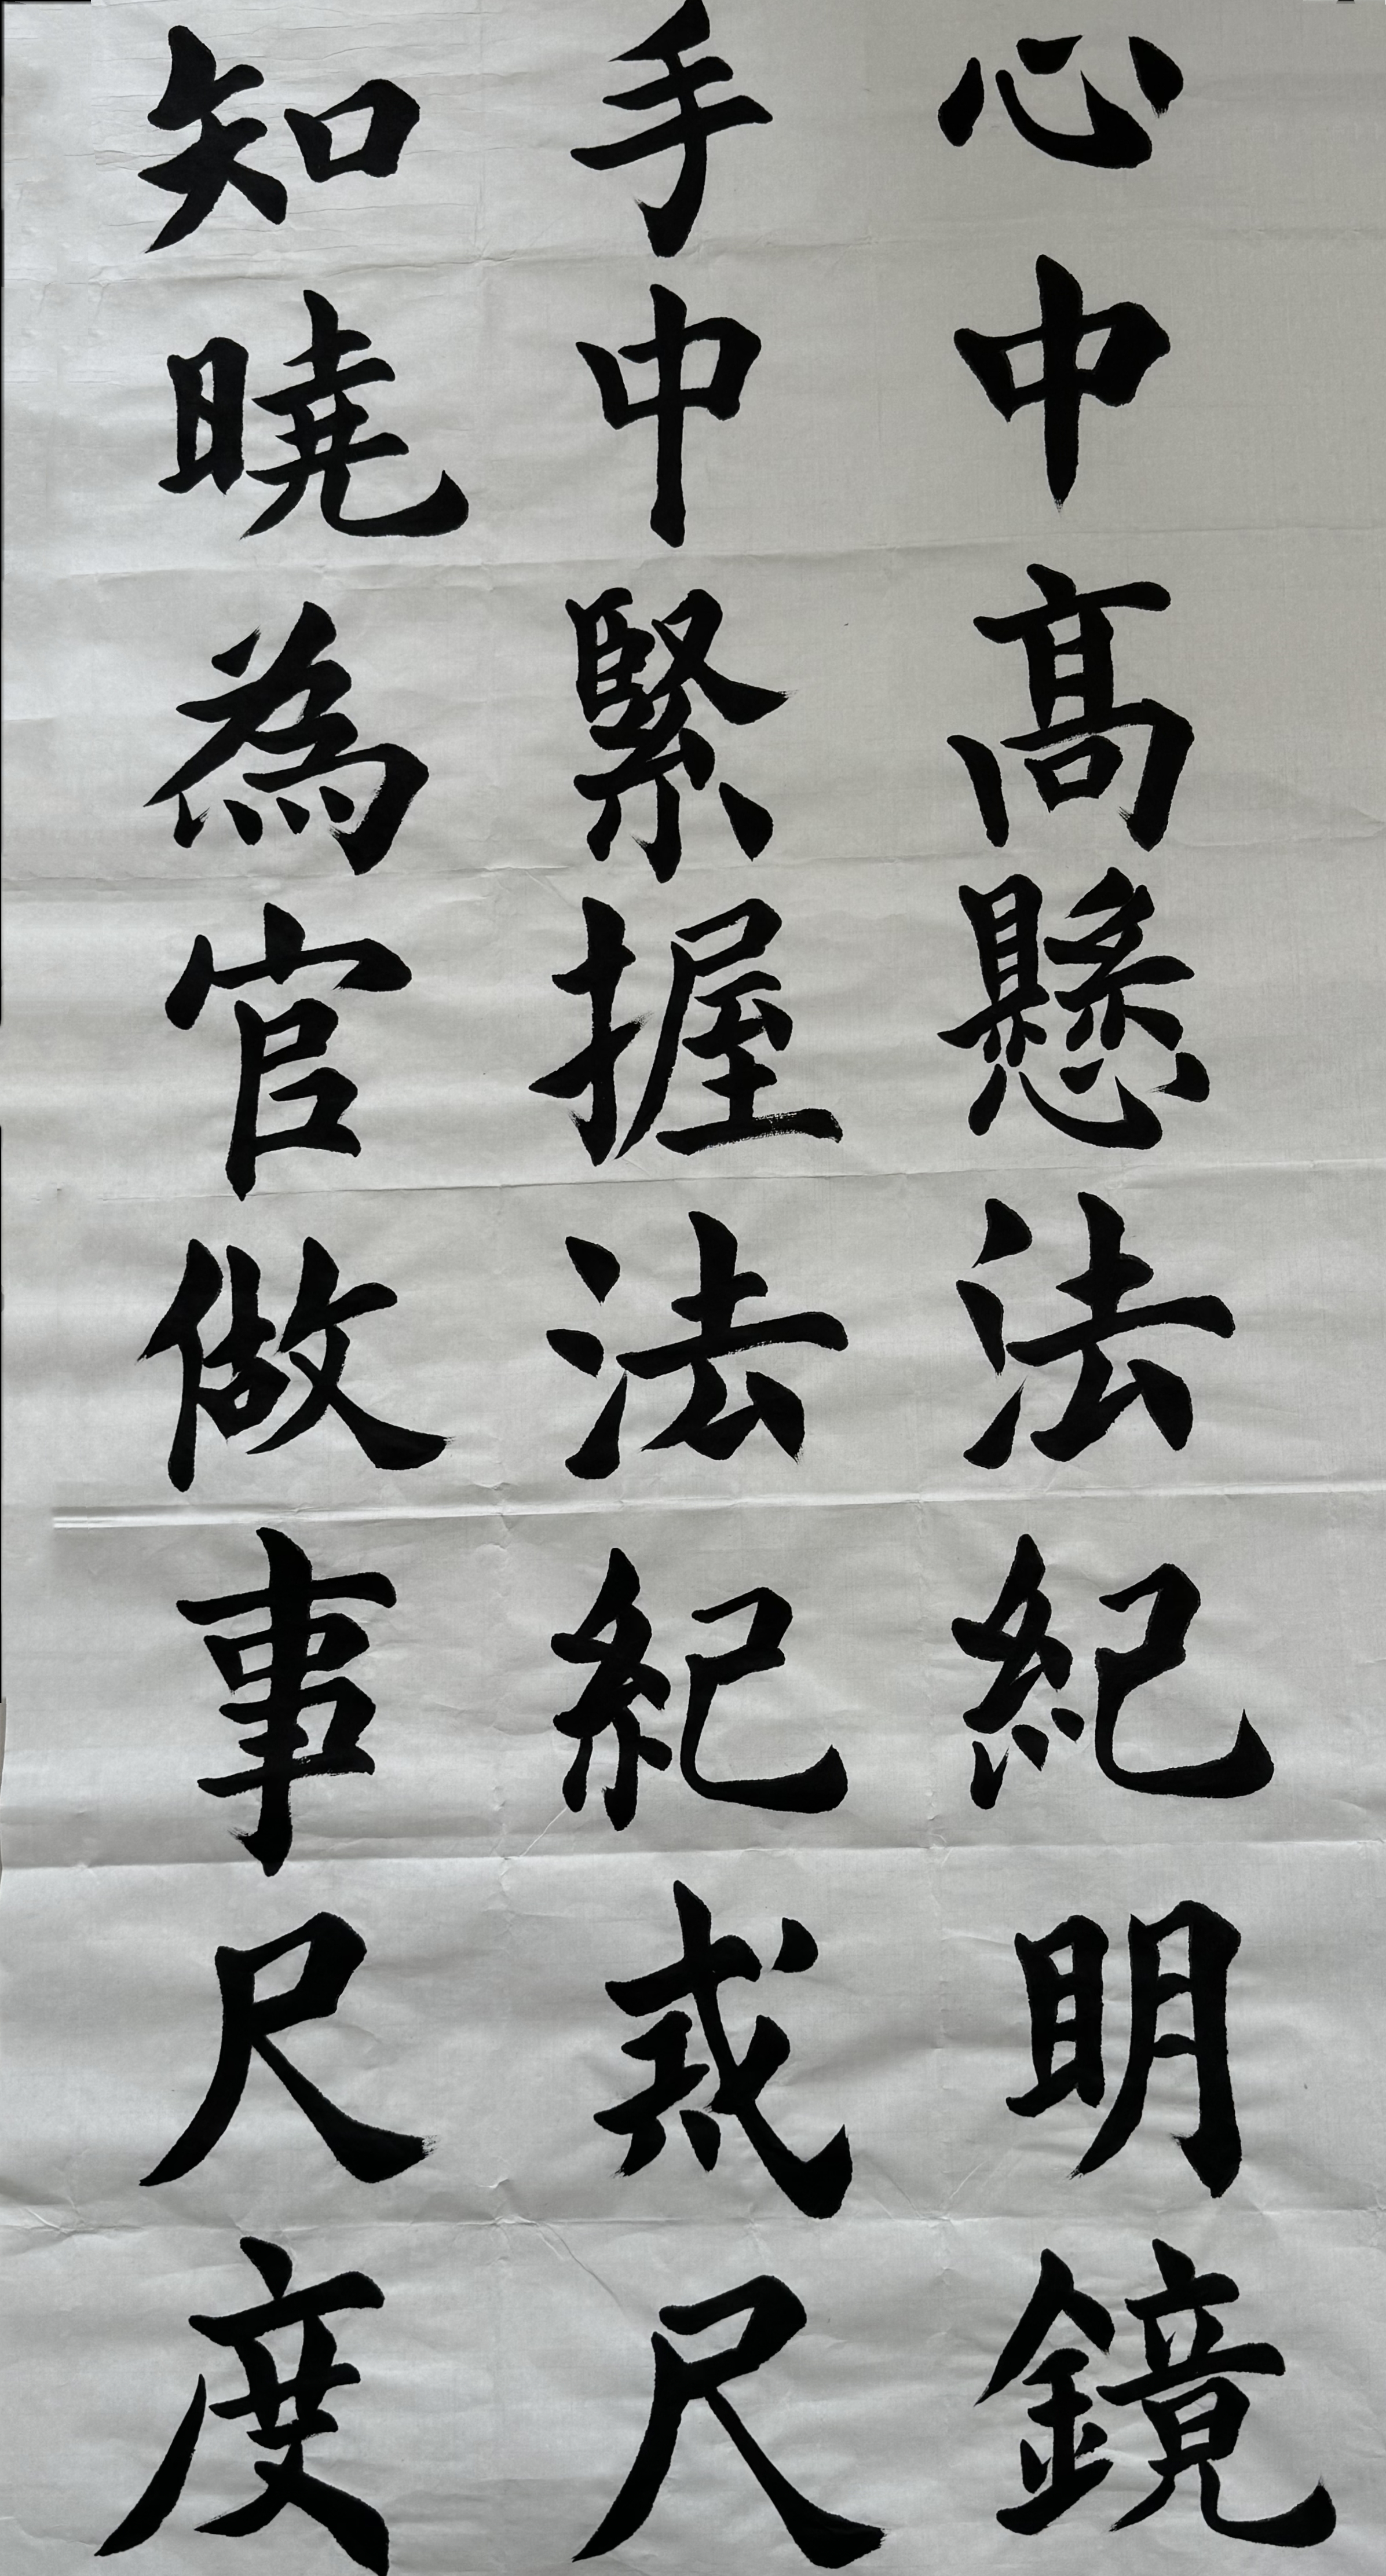 心中髙懸法紀明鏡
手中緊握法紀戒尺
知曉為官做事尺度